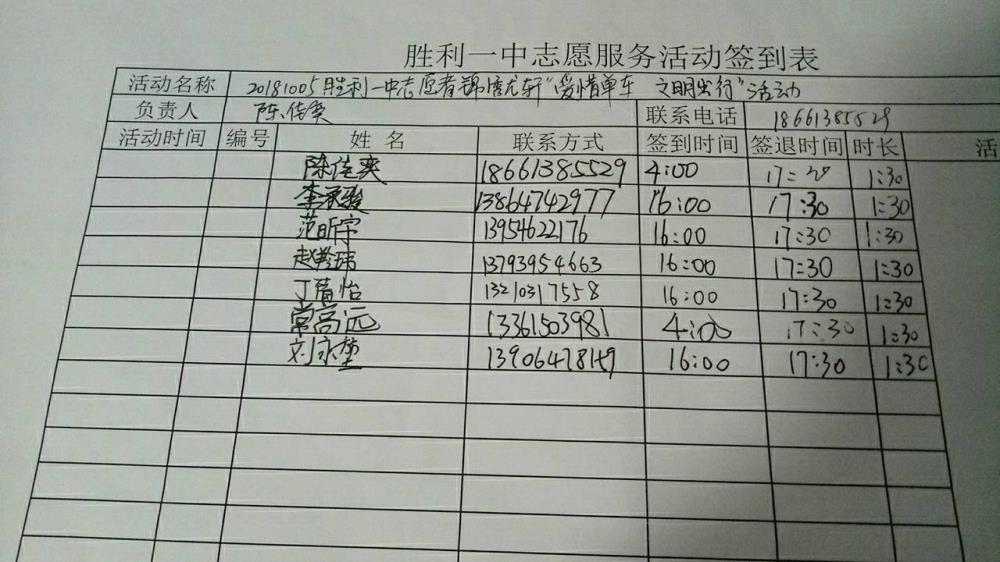 胜利一中志愿服务活动签到表
活动名称 20181005胜利一中志愿者锦悦龙轩"爱惜单车 文明出行"活动
负责人 陈佳奕 联系电话 18661385529
活动时间 编号 姓名 联系方式 签到时间 签退时间 时长 活
陈佳奕 18661385529 4:00 1:30
李承骏 13864742977 16:00 17:30 1:30
范昕宇 13954622176 16:00 17:30 1:30
13793954663 16:00 17:30 1:30
13210317558 16:00 17:30 1:30
常高远 13361503981 4:00 17:30 1:30
16:00 17:30 1:30